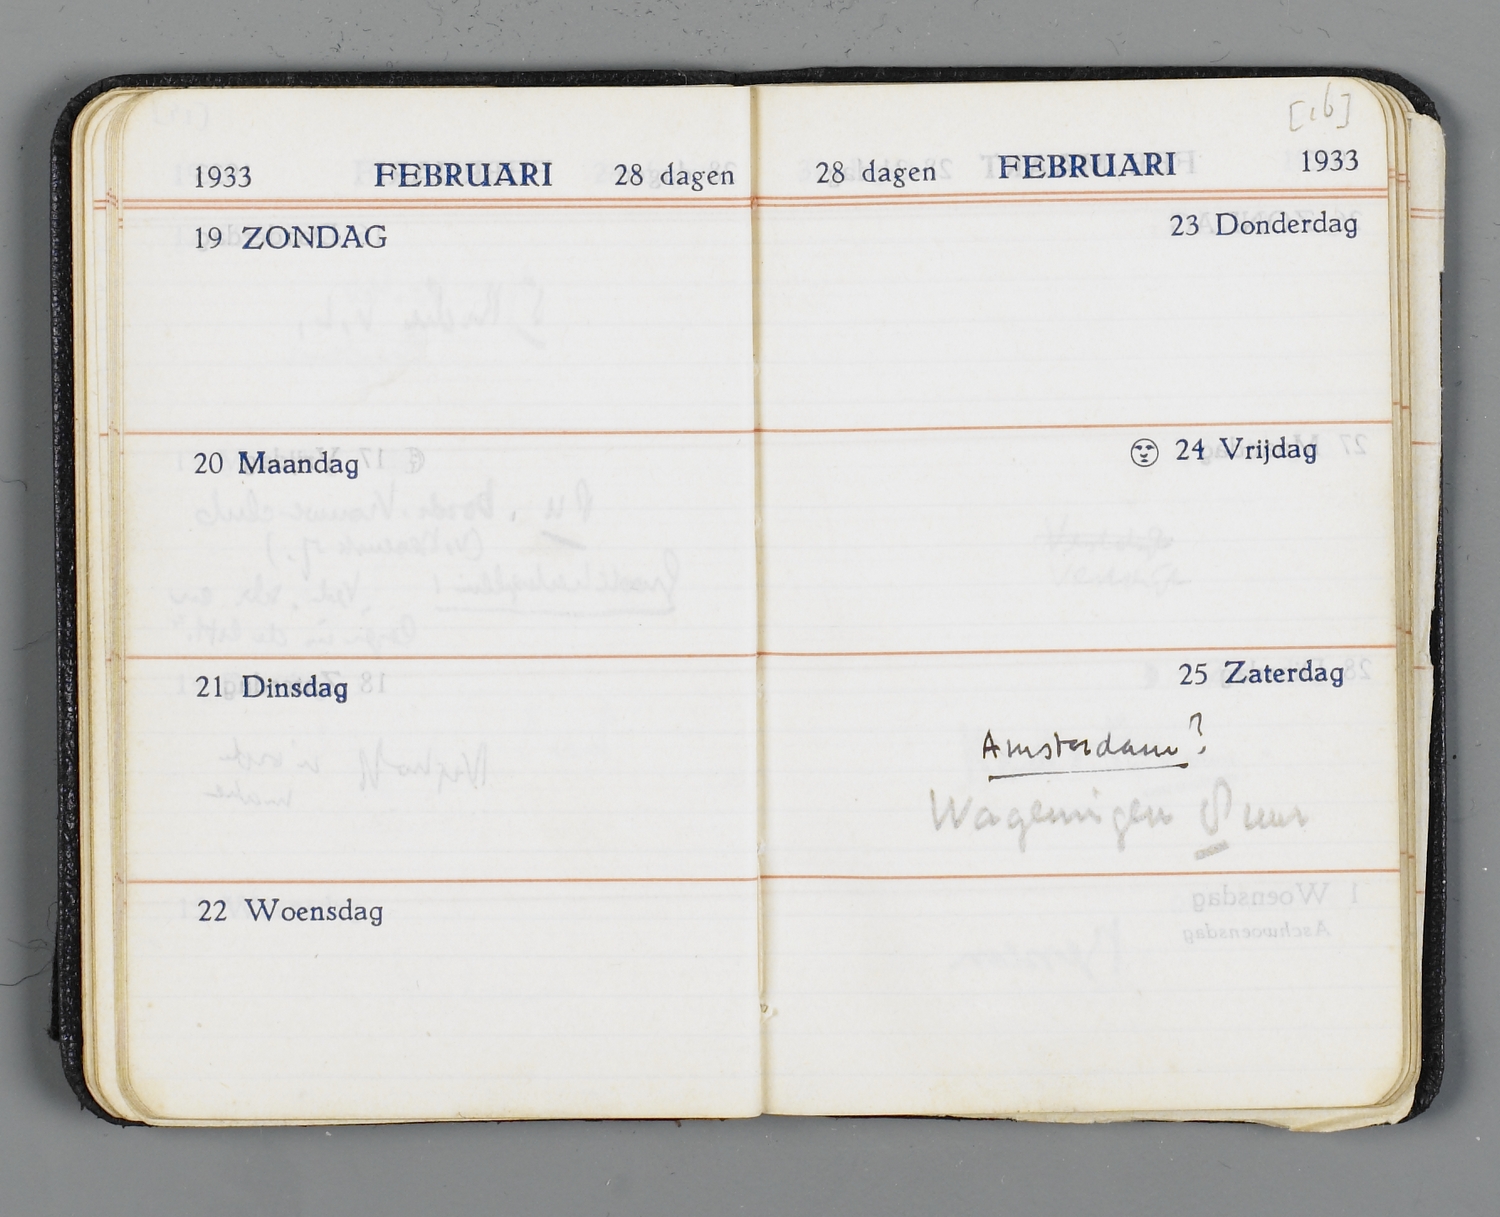 1933 FEBRUARI 28 dagen
19 ZONDAG
20 Maandag
21 Dinsdag
22 Woensdag
[16]
28 dagen FEBRUARI 1933
23 Donderdag
24 Vrijdag
25 Zaterdag
Amsterdam?
Wageningen 8 uur